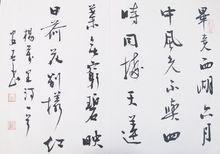 畢竟西湖六月
中風光不與四
時同接天蓮
葉无窮碧映
日荷花別樣紅
楊萬里詩一首